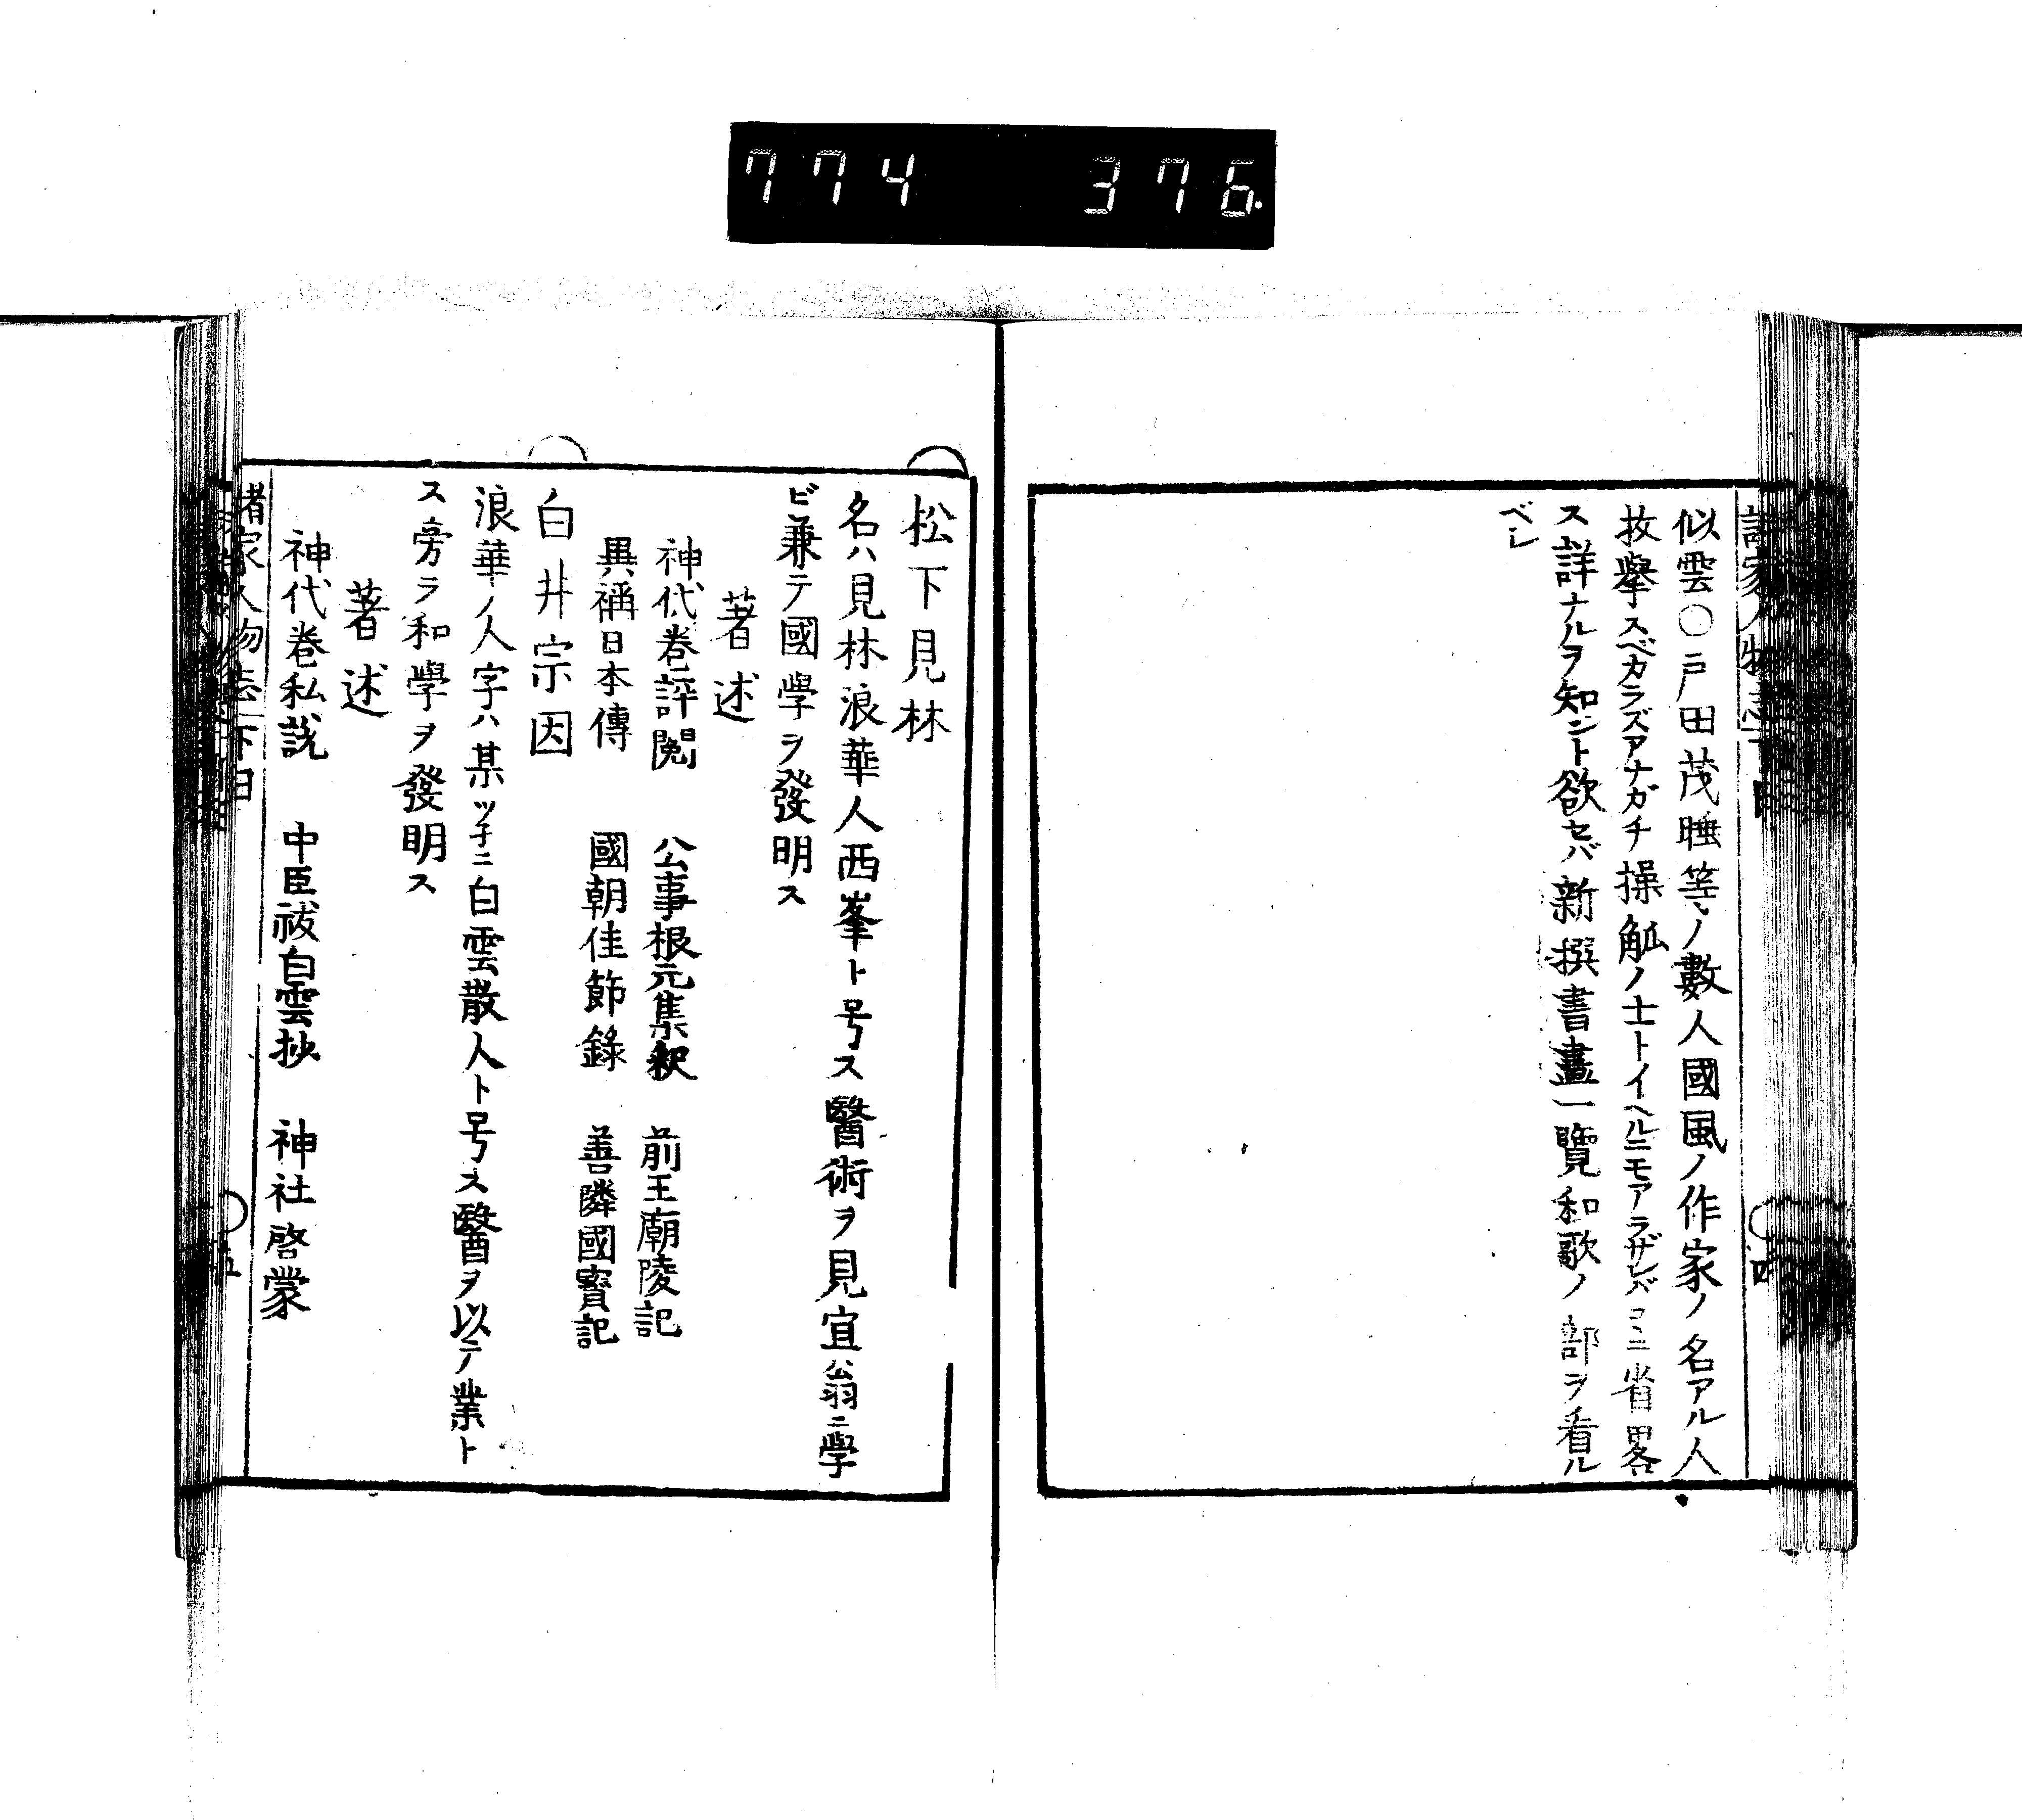 774 376
似雲〇戸田茂睡等ノ數人國風ノ作家ノ名アル人
枚擧スベカラズアナガチ操觚ノ士トイヘルニモアラザレバコヽニ省畧
ス詳ナルヲ知ント欲セバ新撰書畫一覽和歌ノ部ヲ看ル
ベシ
松下見林
名ハ見林浪華人西峯ト号ス醫術ヲ見宜翁ニ學
ビ兼テ國學ヲ發明ス
著述
神代巻評閲 公事根元集釈 前王廟陵記
異稱日本傳 國朝佳節錄 善隣國寳記
白井宗因
浪華ノ人字ハ某ツ子ニ白雲散人ト号ス醫ヲ以テ業ト
ス旁ラ和學ヲ發明ス
著述
神代巻私説 中臣祓白雲抄 神社啓蒙
諸家人物志下